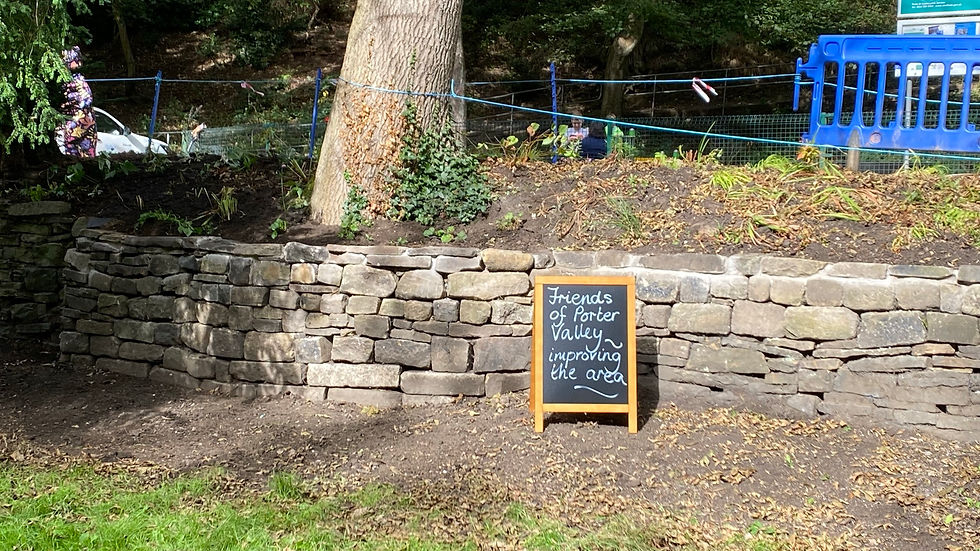 Friends
of Porter
Valley~
improving
the area